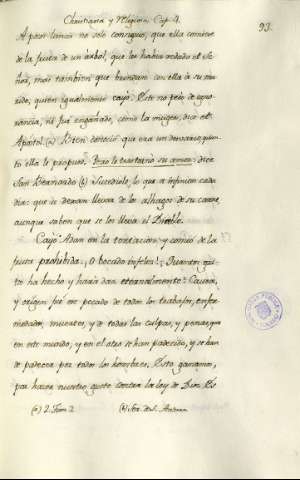 Christiana y Religiosa. Cap. 4.
93.
A pocos lances no solo consiguio, que ella comiese
de la fruta de un arbol, que les habia vedado el Se
ñor, mas tambien que brindase con ella à su ma
rido, quien igualmente cayò. Este no pecò de igno
rancia, ni fuè engañado, como la muger, dice el
Apòstol. (a) Bien conociò que era un desvario, quan
to ella le propuso. Pero le contrarió su amor: dice
San Bernardo (b) Sucediole, lo que à infinitos cada
dia: que se dexan llevar de los alhagos de su carne,
aunque saben que se los lleva el Diablo.
Cayò Adan en la tentacion y comiò de la
fruta prohibida. ¡O bocado infeliz! ¡Quantos
to ha hecho y harà dan eternalmente! Causa,
y origen fuè ese pecado de todos los trabajos, enfer
medades, muertes, y de todas las culpas, y penas, que
en este mundo, y en el otro se han padecido, y se han
de padecer por todos los hombres. Esto ganamos,
por hacer nuestro gusto contra la ley de Dios. Es
(a) 2. Tim. 2
(b)